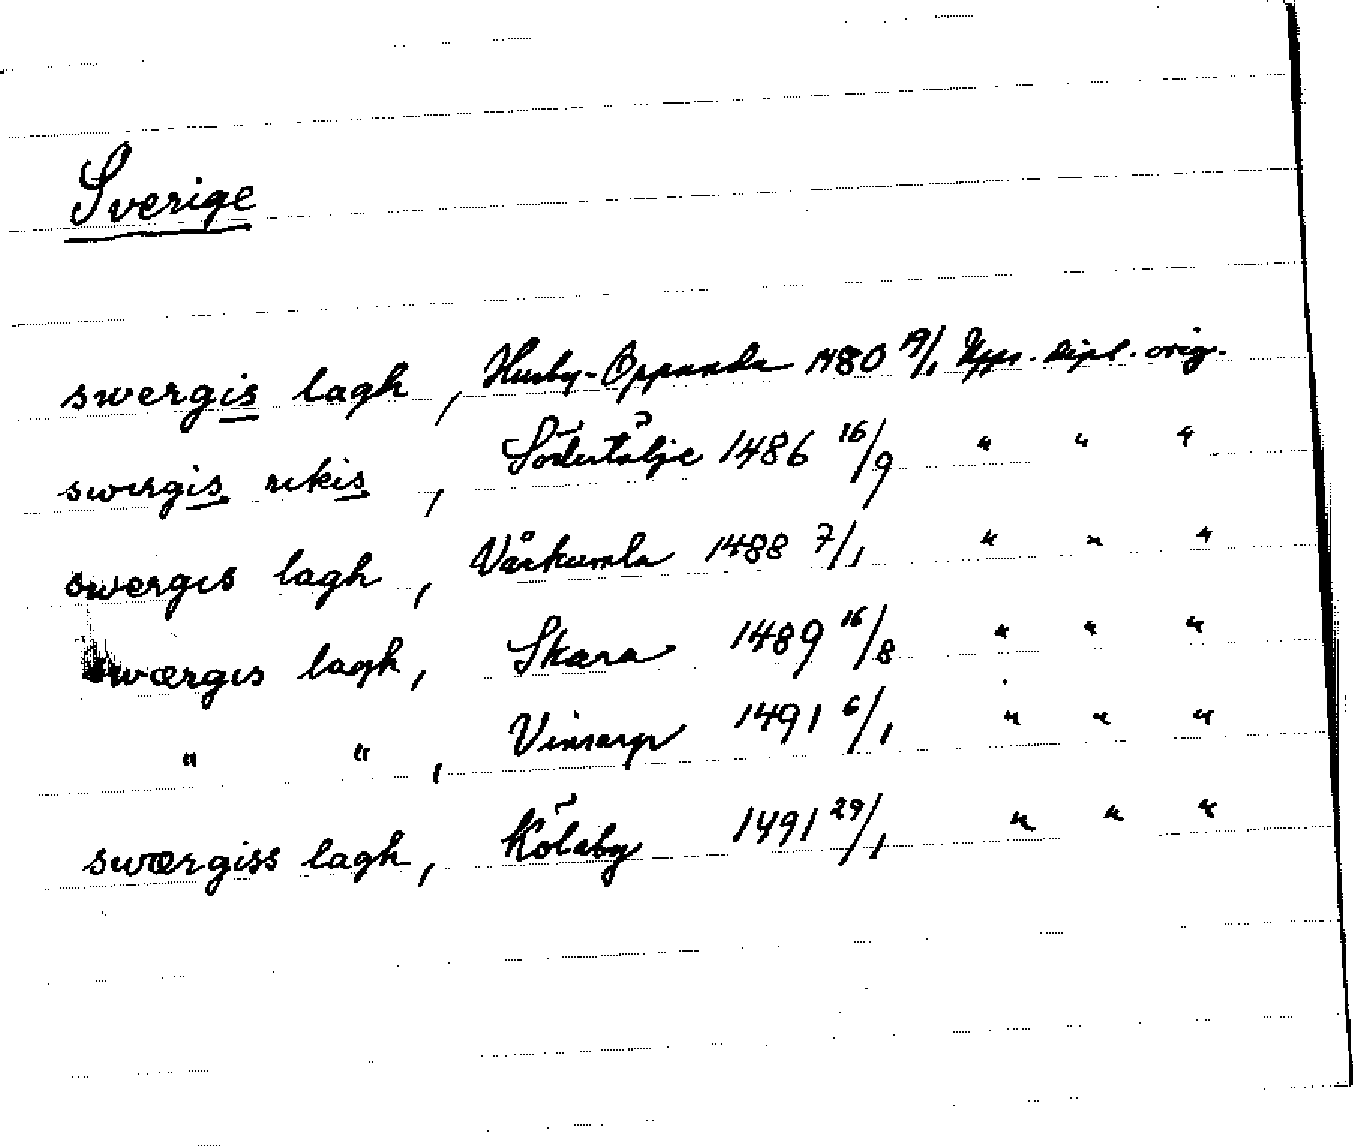 Sverige
swergis lagh, Husby-Oppunda 1480 19/1 Upps. dipl. orig.
swergis rikis, Södertälje 1486 16/9 " " "
swergis lagh, Vårkumla 1488 7/1 " " "
swærgis lagh, Skara 1489 16/8 " " "
" ", Vinsarp 1491 6/1 " " "
swærgiss lagh, Kölaby 1491 29/1 " " "